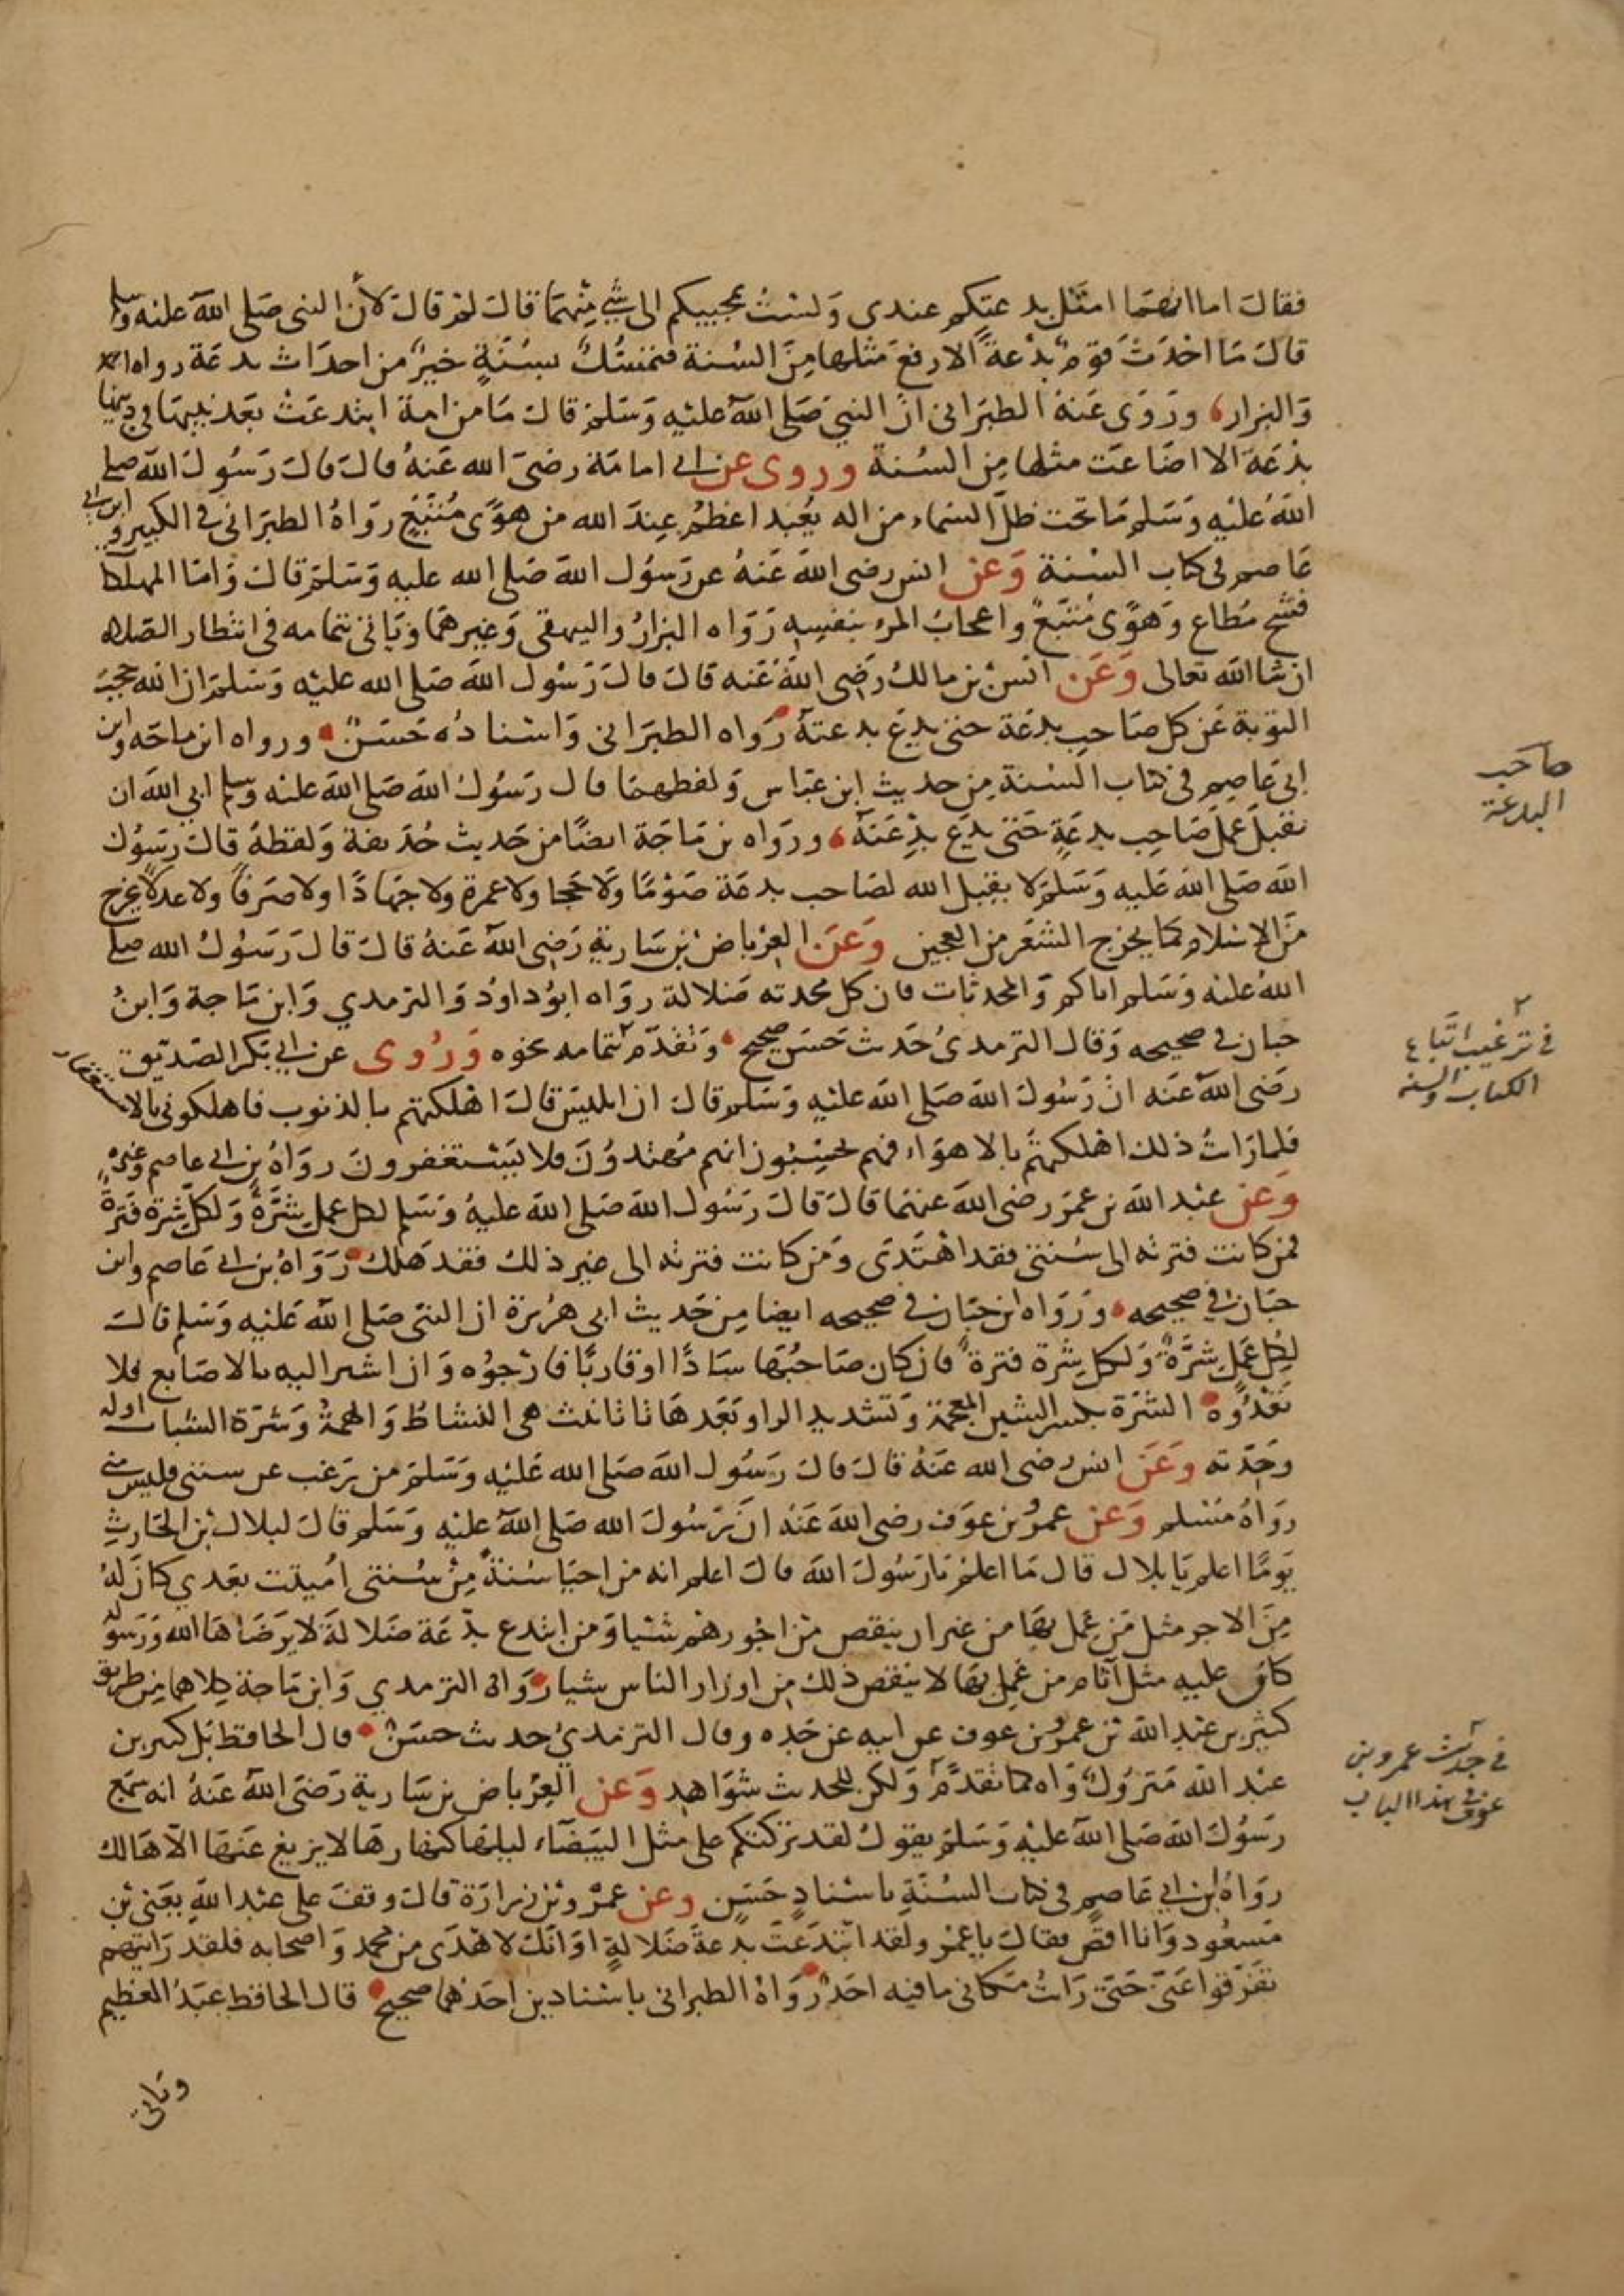 فقال اما انهما امثل بدعتكم عندى ولست بمجيبكم الى شئ منهما قال لم قال لأن النبى صلى الله عليه وسلم
قال ما احدث قوم بدعة الا رفع مثلها من السنة فتمسك بسنة خير من احداث بدعة رواه احمد
والبزار وروى عنه الطبرانى ان النبى صلى الله عليه وسلم قال ما من امة ابتدعت بعد نبيها فى دينها
بدعة الا اضاعت مثلها من السنة وروى عن ابى امامة رضى الله عنه قال قال رسول الله صلى
الله عليه وسلم ما تحت ظل السماء من اله يعبد اعظم عند الله من هوى متبع رواه الطبرانى فى الكبير وابن ابى
عاصم فى كتاب السنة وعن انس رضى الله عنه عن رسول الله صلى الله عليه وسلم قال واما المهلكات
فشح مطاع وهوى متبع واعجاب المرء بنفسه رواه البزار والبيهقى وغيرهما وياتى بتمامه فى انتظار الصلاه
ان شا الله تعالى وعن انس بن مالك رضى الله عنه قال قال رسول الله صلى الله عليه وسلم ان الله حجب
التوبة عن كل صاحب بدعة حتى يدع بدعته رواه الطبرانى واسناده حسن ورواه ابن ماجه وابن
ابى عاصم فى كتاب السنة من حديث ابن عباس ولفظهما قال رسول الله صلى الله عليه وسلم ابى الله ان
يقبل عمل صاحب بدعة حتى يدع بدعته ورواه بن ماجة ايضا من حديث حذيفة ولفظه قال رسول
الله صلى الله عليه وسلم لا يقبل الله لصاحب بدعة صوما ولا حجا ولا عمرة ولا جهادا ولا صرفا ولا عدلا يخرج
من الاسلام كما يخرج الشعر من العجين وعن العرباض بن سارية رضى الله عنه قال قال رسول الله صلى
الله عليه وسلم اياكم والمحدثات فان كل محدثه ضلالة رواه ابو داود والترمدي وابن ماجة وابن
حبان فى صحيحه وقال الترمدى حديث حسن صحيح وتقدم بتمامه نحوه وروى عن ابى بكر الصديق
رضى الله عنه ان رسول الله صلى الله عليه وسلم قال ان ابليس قال اهلكتهم بالذنوب فاهلكونى بالاستغفار
فلما رات ذلك اهلكتهم بالاهواء فهم يحسبون انهم مهتدون فلا يستغفرون رواه بن ابى عاصم وغيره
وعن عبد الله بن عمر رضى الله عنهما قال قال رسول الله صلى الله عليه وسلم لكل عمل شرة ولكل شرة فترة
فمن كانت فترته الى سنتى فقد اهتدى ومن كانت فترته الى غير ذلك فقد هلك رواه بن ابى عاصم وابن
حبان فى صحيحه ورواه ابن حبان فى صحيحه ايضا من حديث ابى هريرة ان النبى صلى الله عليه وسلم قال
لكل عمل شرة ولكل شرة فترة فان كان صاحبها سادا او قاربا فارجوه وان اشير اليه بالاصابع فلا
تعدوه الشرة بكسر الشين المعجمة وتشديد الراء وبعدها تا تانيث هى النشاط والهمة وشرة الشباب اوله
وحدته وعن انس رضى الله عنه قال قال رسول الله صلى الله عليه وسلم من يرغب عن سنتى فليس منى
رواه مسلم وعن عمرو بن عوف رضى الله عنه ان رسول الله صلى الله عليه وسلم قال لبلال بن الحارث
يوما اعلم يا بلال قال ما اعلم يا رسول الله قال اعلم انه من احيا سنة من سنتى اميتت بعدي كان له
من الاجر مثل من عمل بها من غير ان ينقص من اجورهم شيا ومن ابتدع بدعة ضلالة لا يرضاها الله ورسوله
كان عليه مثل آثام من عمل بها لا ينقص ذلك من اوزار الناس شيا رواه الترمدي وابن ماجة كلاهما من طريق
كثير بن عبد الله بن عمرو بن عوف عن ابيه عن جده وقال الترمدي حديث حسن قال الحافظ بل كثير بن
عبد الله متروك واه كما تقدم ولكن للحديث شواهد وعن العرباض بن سارية رضى الله عنه انه سمع
رسول الله صلى الله عليه وسلم يقول لقد تركتكم على مثل البيضاء ليلها كنهارها لا يزيغ عنها الا هالك
رواه ابن ابى عاصم فى كتاب السنة باسناد حسن وعن عمرو بن زرارة قال وقف على عبد الله يعنى بن
مسعود وانا اقص فقال يا عمرو لقد ابتدعت بدعة ضلالة او انك لاهدى من محمد واصحابه فلقد رايتهم
تفرقوا عنى حتى رات مكانى ما فيه احد رواه الطبرانى باسنادين احدهما صحيح قال الحافظ عبد العظيم
وياتى
صاحب
البدعة
فى ترغيب اتباع
الكتاب والسنه
فى حديث عمرو بن
عوف فى هذا الباب